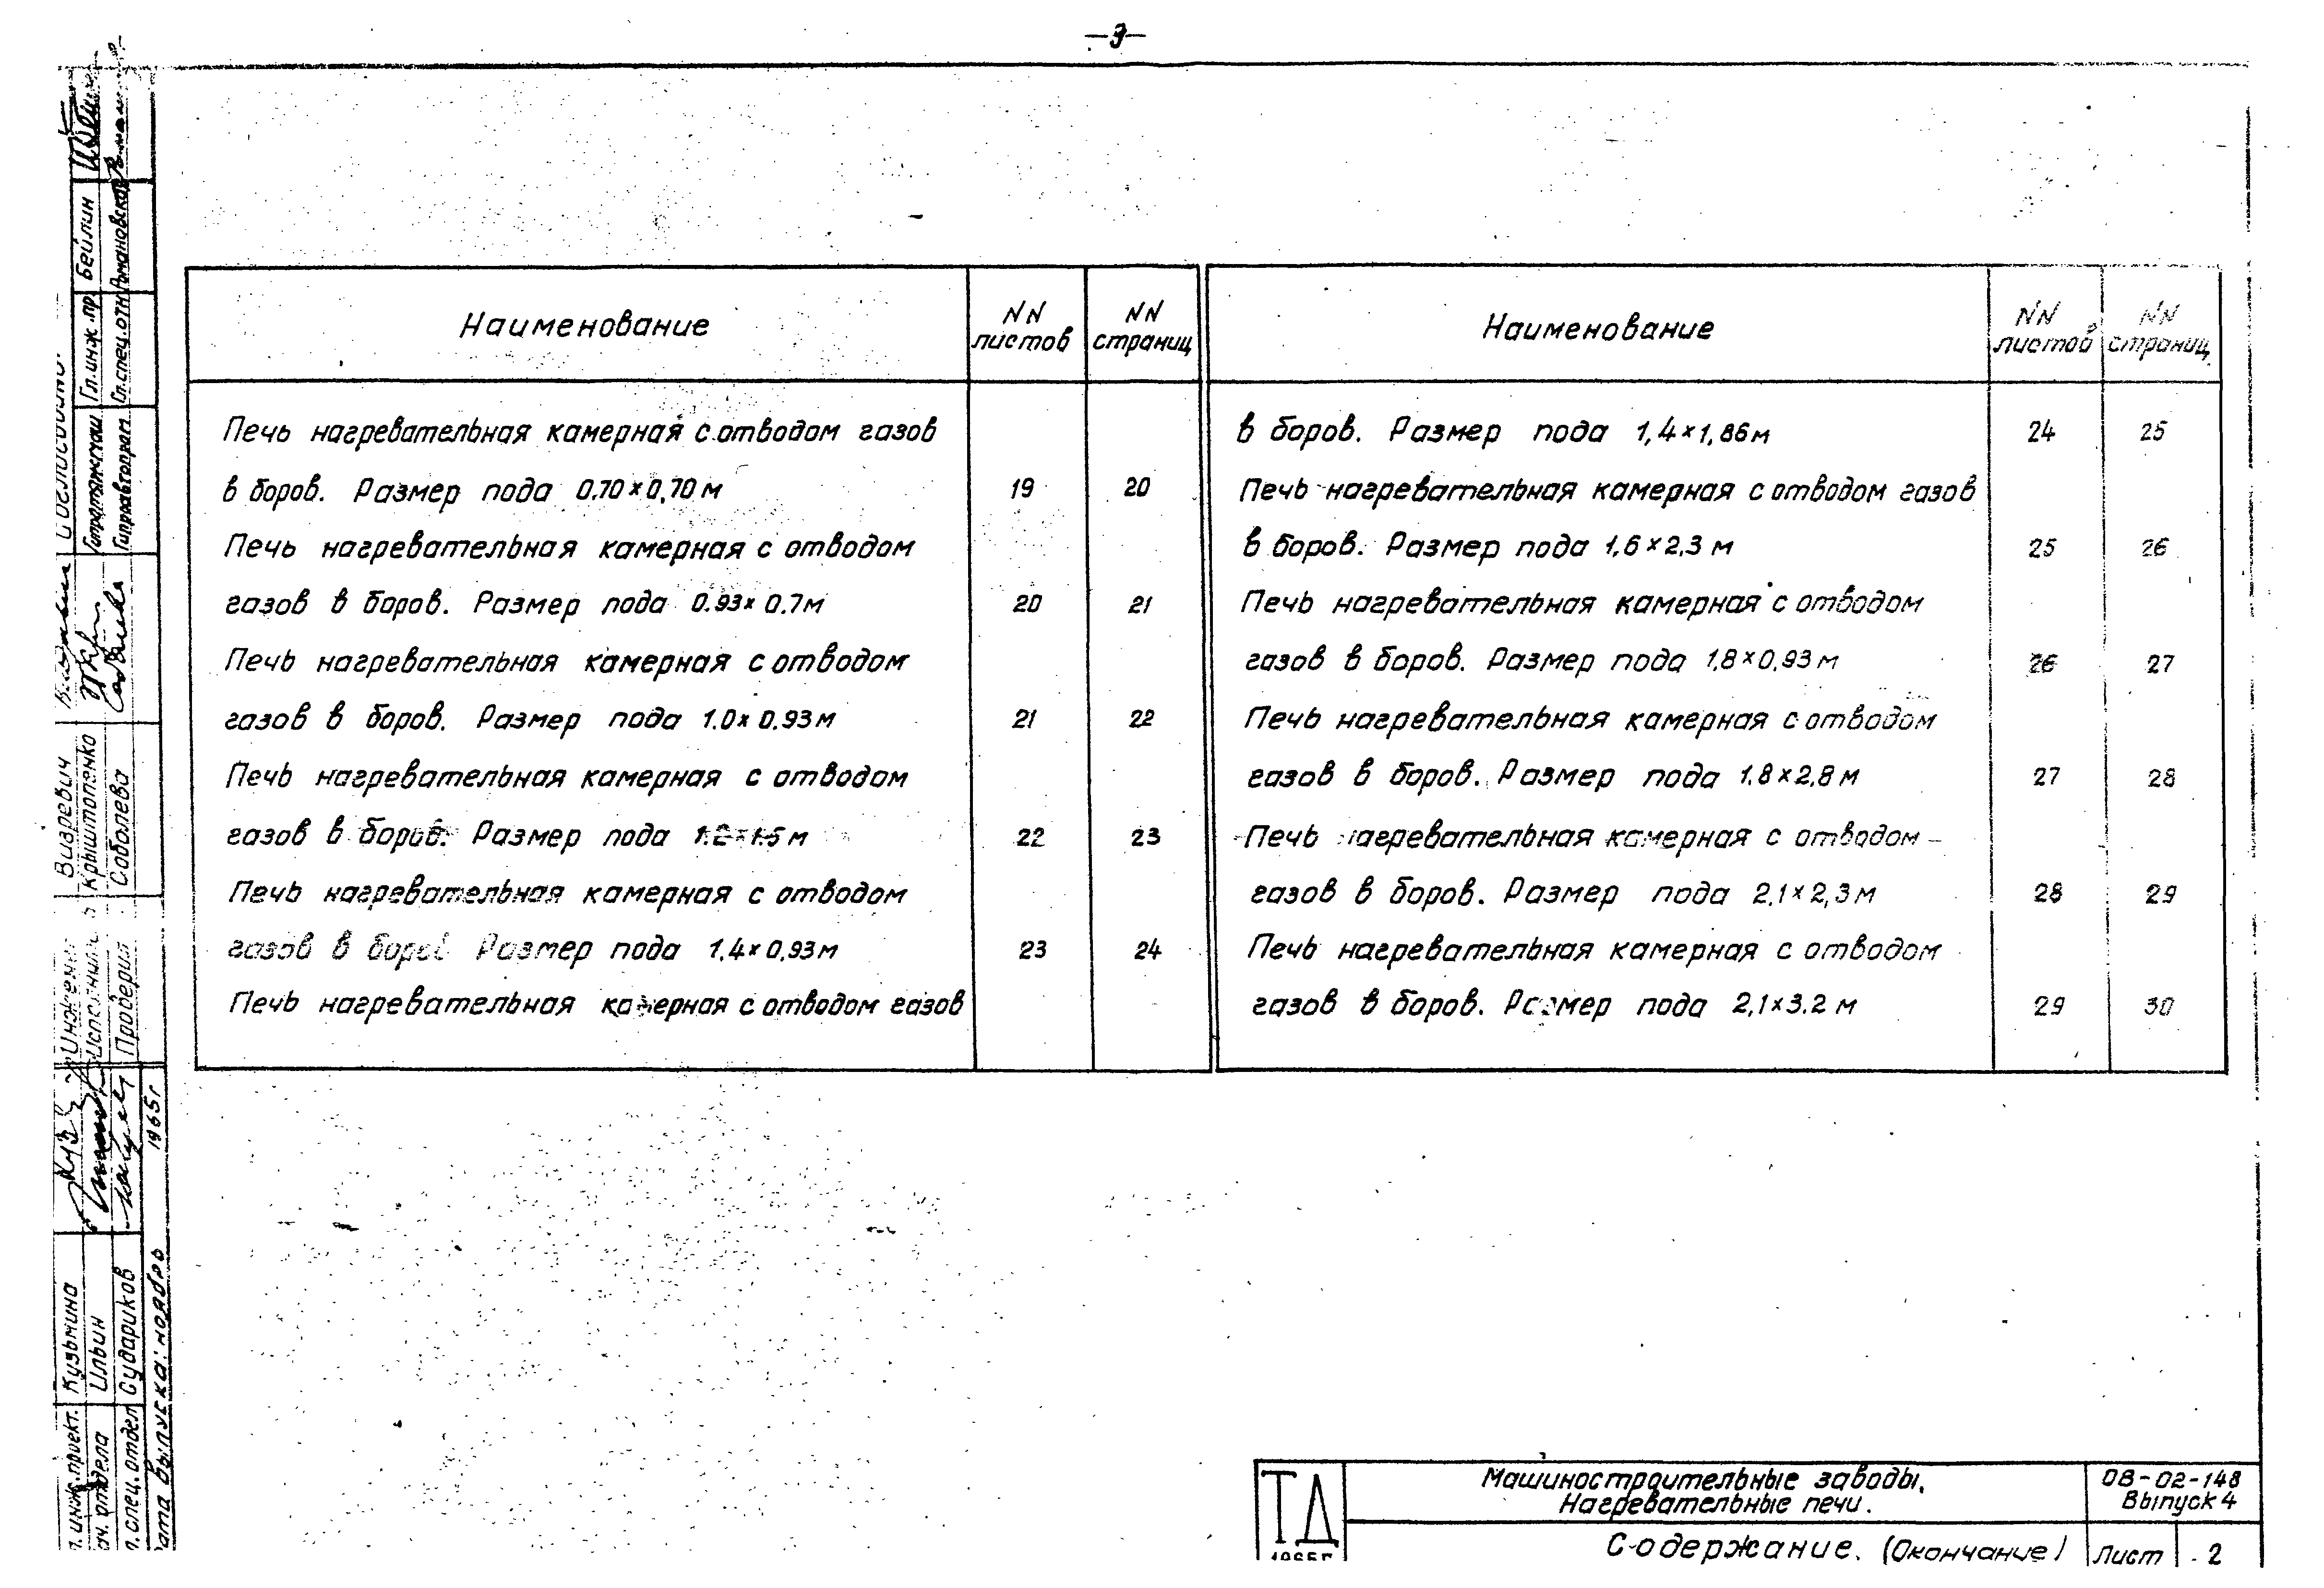 —3—
Наименование
NN листов
NN страниц
Печь нагревательная камерная с отводом газов
в боров. Размер пода 0,70×0,70м 19 20
Печь нагревательная камерная с отводом
газов в боров. Размер пода 0.93×0.7м 20 21
Печь нагревательная камерная с отводом
газов в боров. Размер пода 1.0×0.93м 21 22
Печь нагревательная камерная с отводом
газов в боров. Размер пода 1.2×1.5м 22 23
Печь нагревательная камерная с отводом
газов в боров Размер пода 1,4×0,93м 23 24
Печь нагревательная камерная с отводом газов
Наименование
NN листов
NN страниц
в боров. Размер пода 1,4×1,86м 24 25
Печь нагревательная камерная с отводом газов
в боров. Размер пода 1,6×2,3 м 25 26
Печь нагревательная камерная с отводом
газов в боров. Размер пода 1,8×0,93м 26 27
Печь нагревательная камерная с отводом
газов в боров. Размер пода 1,8×2,8м 27 28
Печь нагревательная камерная с отводом
газов в боров. Размер пода 2,1×2,3м 28 29
Печь нагревательная камерная с отводом
газов в боров. Размер пода 2,1×3.2 м 29 30
Гл.инж.пр. Бейлин
Гл.спец.отд. Романовский
Гипротяжмаш
Гипроавтопром
Визревич
Крыштопенко
Проверил Соболева
инж.проект. Кузьмина
отдела Ильин
спец.отдел Судариков
выпуска: ноябрь 1965г
ТД
1965г
Машиностроительные заводы.
Нагревательные печи.
08-02-148
Выпуск 4
Содержание. (Окончание)
Лист 2